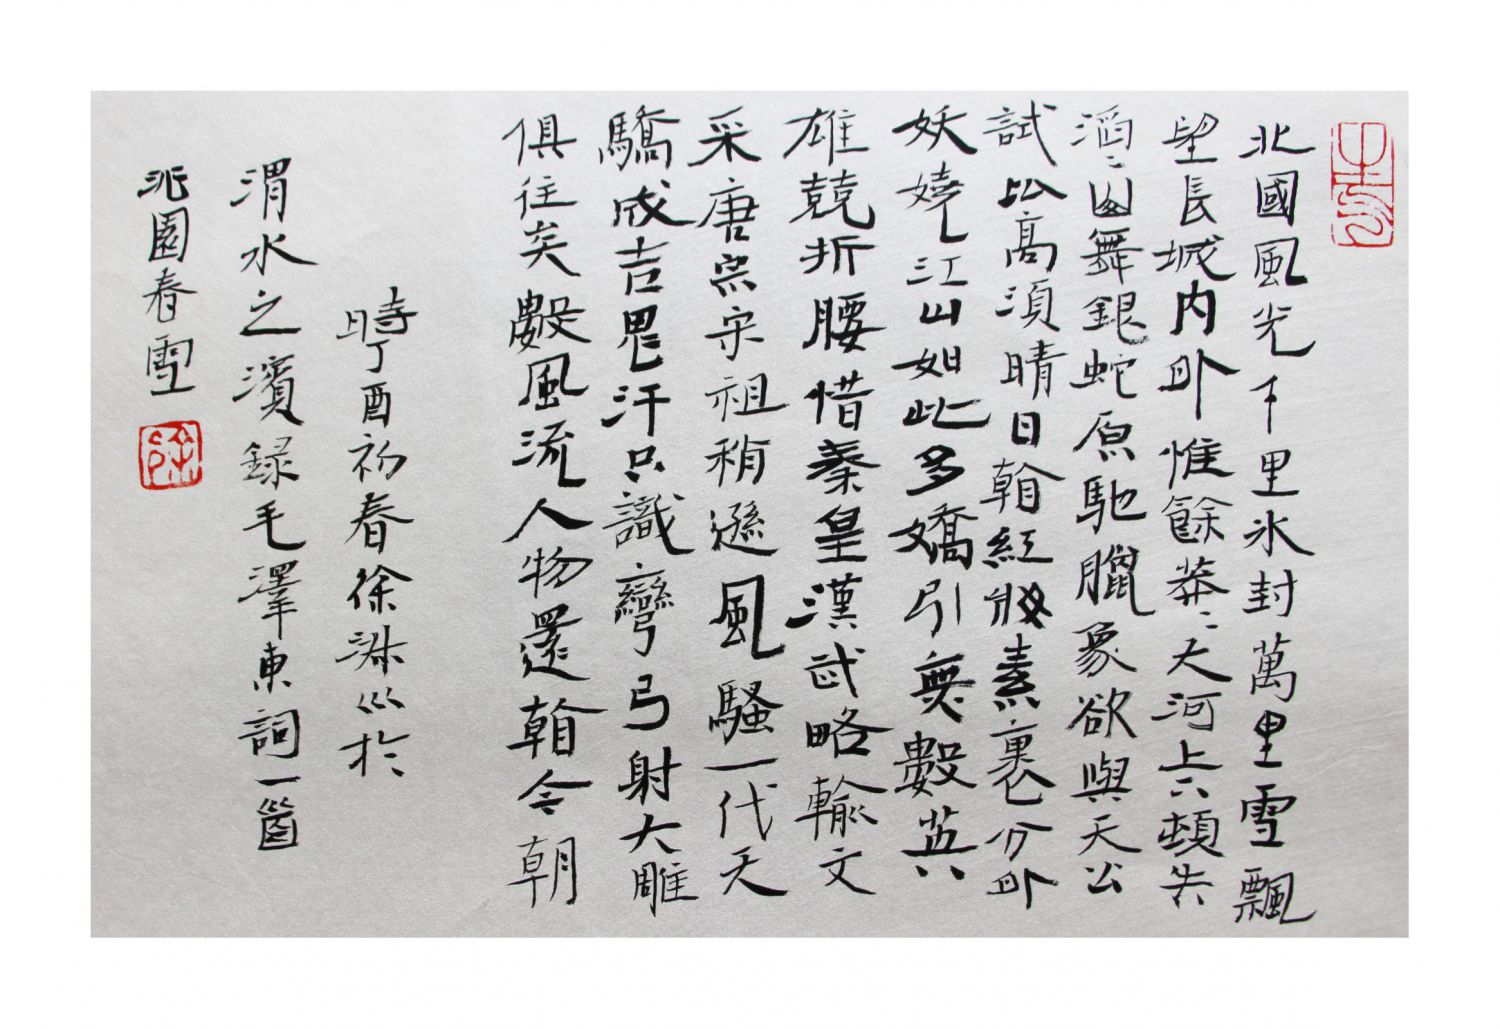 北國風光千里冰封萬里雪飄
望長城内外惟餘莽〻大河上下頓失
滔〻山舞銀蛇原馳臘象欲與天公
試比高須晴日看紅妝素裹分外
妖嬈江山如此多嬌引無數英
雄競折腰惜秦皇漢武略輸文
采唐宗宋祖稍遜風騷一代天
驕成吉思汗只識彎弓射大雕
俱往矣數風流人物還看今朝
時丁酉初春徐 於
渭水之濱録毛澤東詞一首
沁園春雪
徐